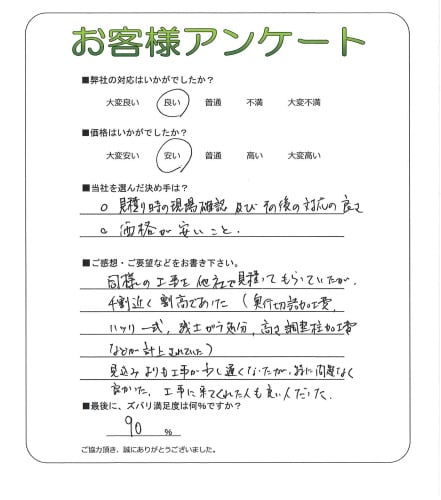 お客様アンケート
■弊社の対応はいかがでしたか？
大変良い 良い 普通 不満 大変不満
■価格はいかがでしたか？
大変安い 安い 普通 高い 大変高い
■当社を選んだ決め手は？
○ 見積り時の現場確認 及び その後の対応の良さ
○ 価格が安いこと.
■ご感想・ご要望などをお書き下さい。
同様の工事を他社で見積ってもらっていたが.
4割近く割高であった（奥行切詰加工費,
ハツリ一式, 残土がら処分, 高さ調整柱加工費
などが計上されていた）
見込みよりも工事が少し遅くなったが, 特に問題なく
良かった. 工事に来てくれた人も良い人だった.
■最後に、ズバリ満足度は何%ですか？
90 %
ご協力頂き、誠にありがとうございました。